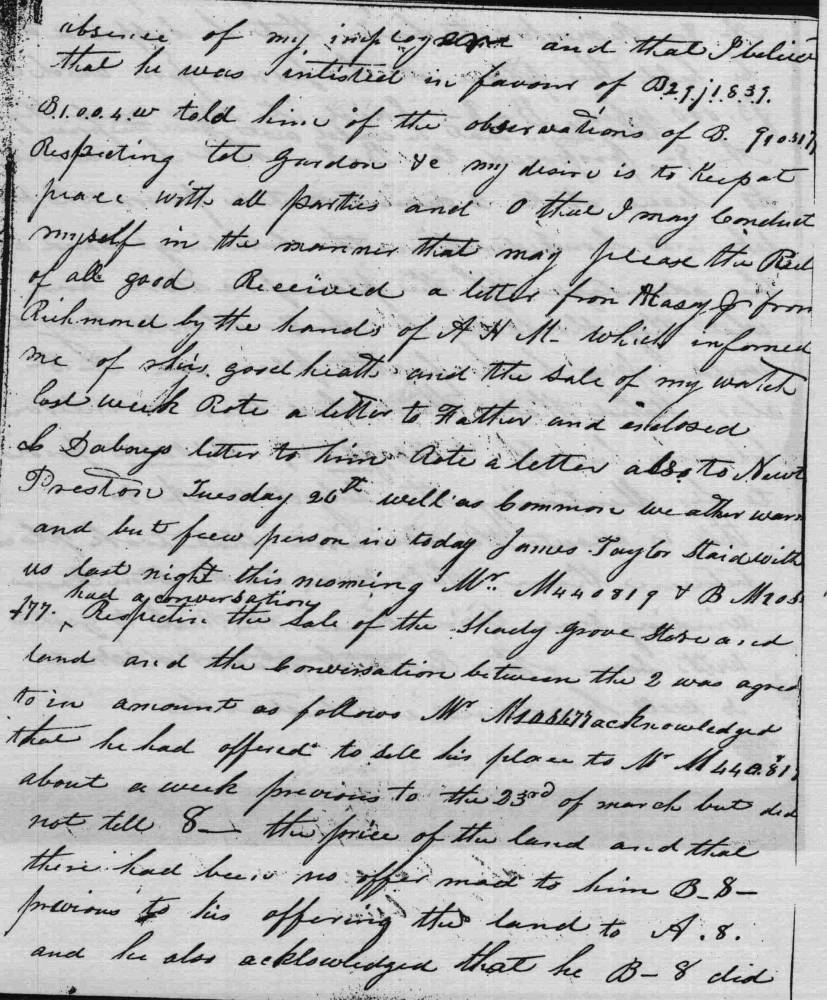 absence of my imployer and that I believe
that he was intisteed in favour of B29j1.839.
B.1.0.0.4.w told him of the observations of B.
Respecting tot Gardon &c my desire is to Keep at
peace with all parties and O that I may Conduct
myself in the manner that may please the
of all good Received a letter from Jr from
Richmond by the hands of A H M- which informed
me of his good heath and the Sale of my watch
last week Rote a letter to Father and inclosed
Dabneys letter to him Rote a letter also to Newt
Preston Tuesday 26th well as Common weather warm
and but few person in today James Taylor Staid with
us last night this morning Mr. M440819 & B M205
477. had a conversation Respectin the Sale of the Shady Grove Store and
land and the Conversation between the 2 was agreed
to in amount as follows Mr acknowledged
that he had offered to sell his place to Mr M440.819
about a week previous to the 23rd of march but did
not tell 8- the price of the land and that
there had been no offer mad to him B-8-
previous to his offering the land to A.8.
and he also acklowedged that he B-8 did